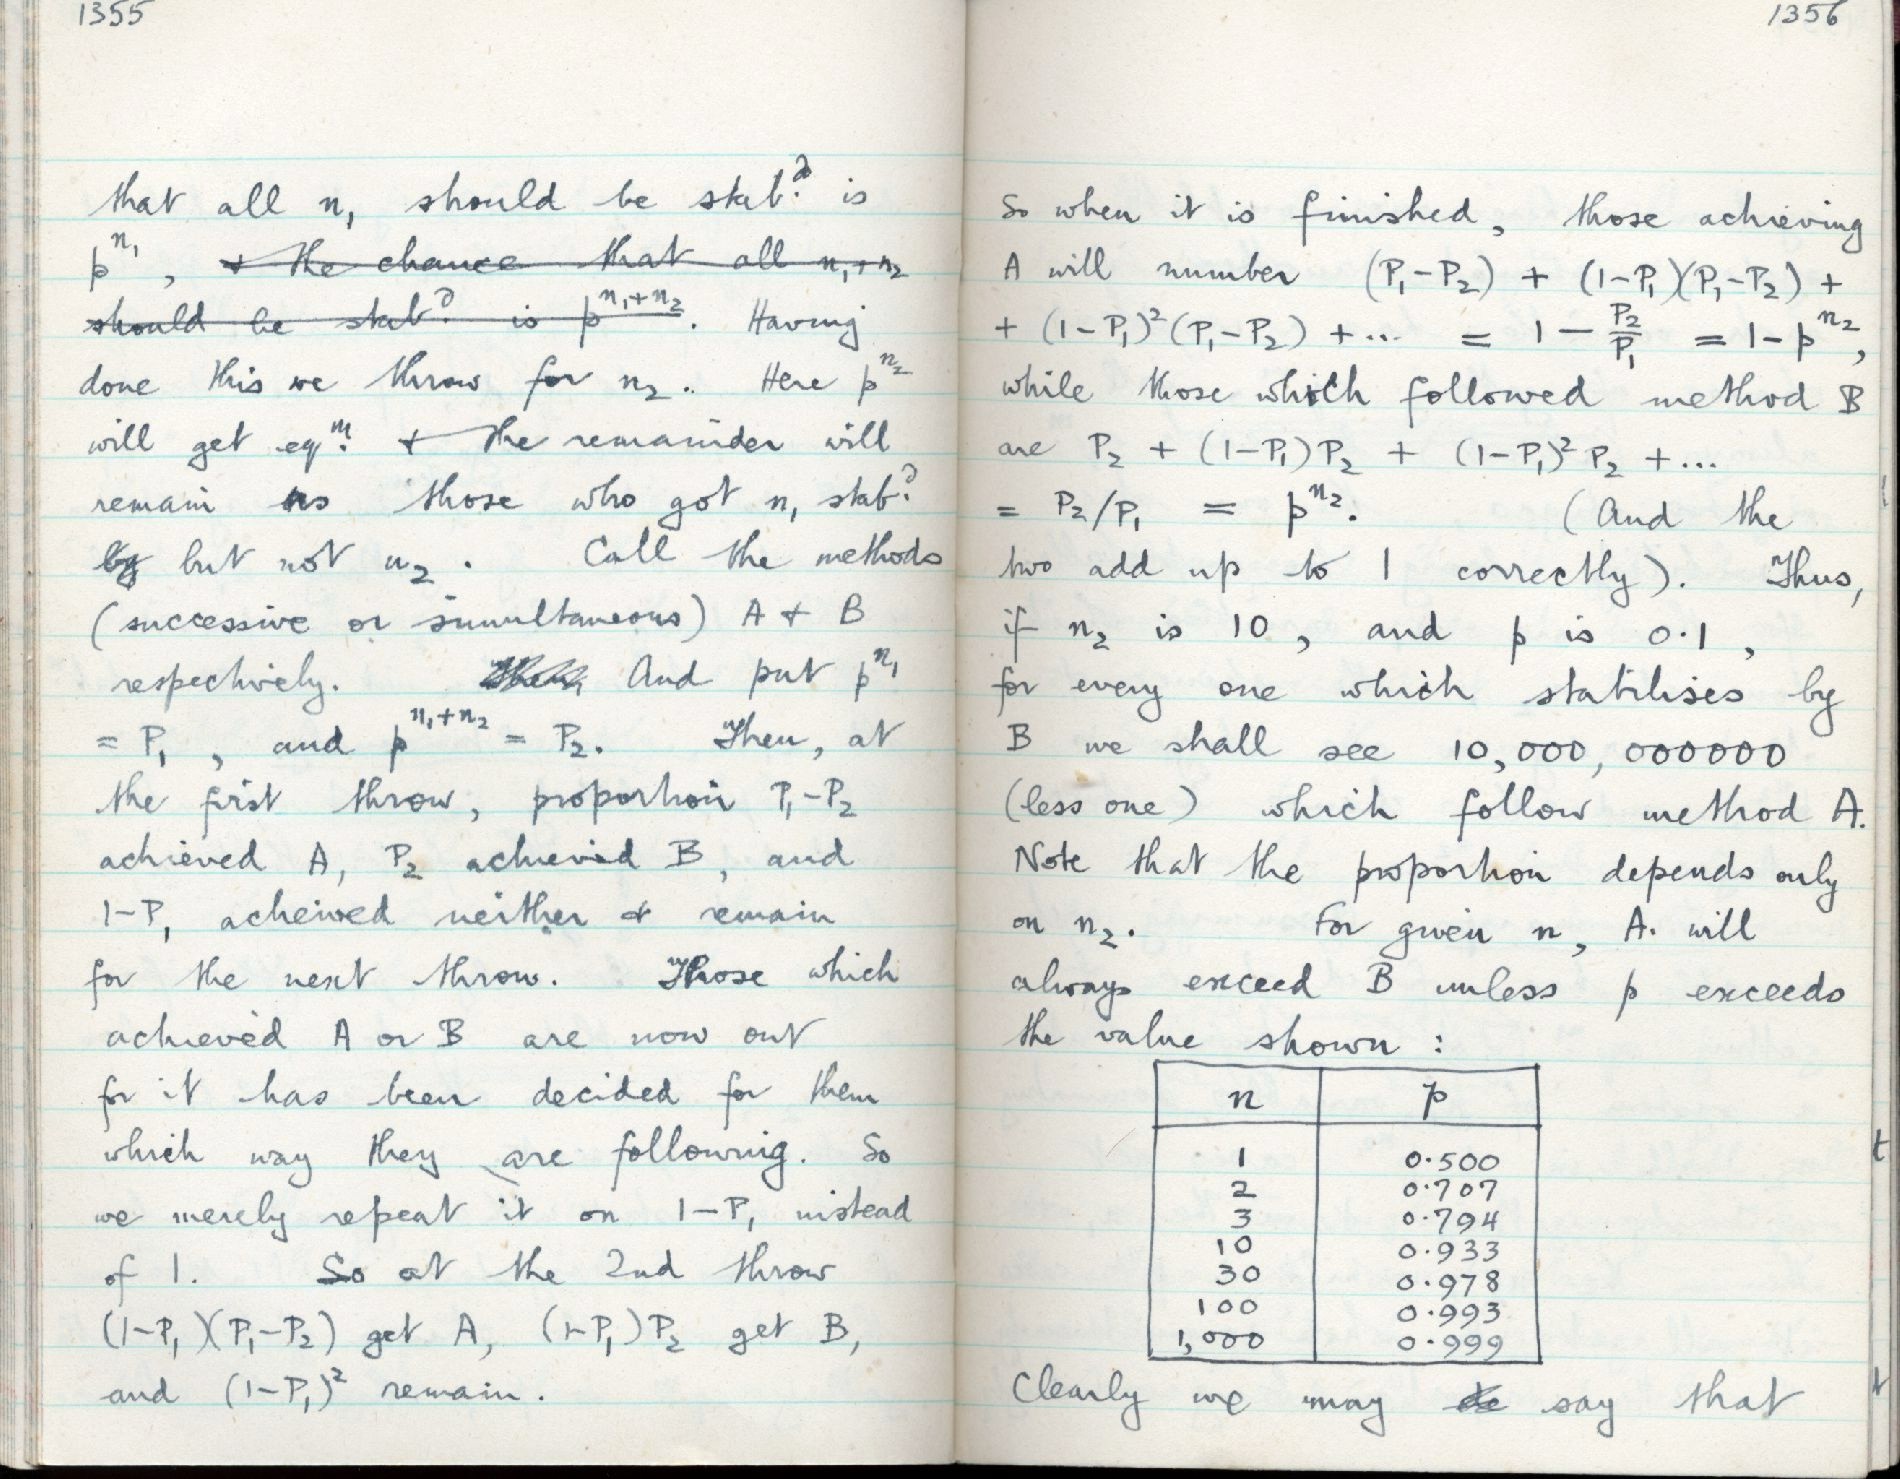 1355
that all n₁ should be stabᵈ is
pⁿ¹, + the chance that all n₁+n₂
should be stabᵈ is pⁿ¹⁺ⁿ². Having
done this we throw for n₂. Here pⁿ²
will get eqᵐ. + the remainder will
remain as those who got n₁ stabᵈ
by but not n₂. Call the methods
(successive or simultaneous) A + B
respectively. Then And put pⁿ¹
= P₁, and pⁿ¹⁺ⁿ² = P₂. Then, at
the first throw, proportion P₁-P₂
achieved A, P₂ achieved B, and
1-P₁ acheived neither + remain
for the next throw. Those which
achieved A or B are now out
for it has been decided for them
which way they are following. So
we merely repeat it on 1-P₁ instead
of 1. So at the 2nd throw
(1-P₁)(P₁-P₂) get A, (1-P₁)P₂ get B,
and (1-P₁)² remain.
1356
So when it is finished, those achieving
A will number (P₁-P₂) + (1-P₁)(P₁-P₂) +
+ (1-P₁)²(P₁-P₂) + ... = 1 - P₂/P₁ = 1-pⁿ²,
while those which followed method B
are P₂ + (1-P₁)P₂ + (1-P₁)²P₂ + ...
= P₂/P₁ = pⁿ². (And the
two add up to 1 correctly). Thus,
if n₂ is 10, and p is 0.1,
for every one which stabilises by
B we shall see 10,000,000000
(less one) which follow method A.
Note that the proportion depends only
on n₂. For given n, A. will
always exceed B unless p exceeds
the value shown :
n p
1 0.500
2 0.707
3 0.794
10 0.933
30 0.978
100 0.993
1,000 0.999
Clearly we may say that